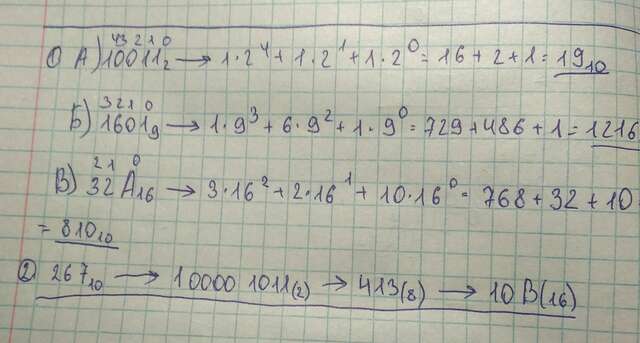 ① А) 1⁴0³0²1¹1⁰₂ → 1·2⁴ + 1·2¹ + 1·2⁰ = 16 + 2 + 1 = 19₁₀
Б) 1³6²0¹1⁰₉ → 1·9³ + 6·9² + 1·9⁰ = 729 + 486 + 1 = 1216
В) 3²2¹A⁰₁₆ → 3·16² + 2·16¹ + 10·16⁰ = 768 + 32 + 10
= 810₁₀
② 267₁₀ → 100001011(2) → 413(8) → 10B(16)